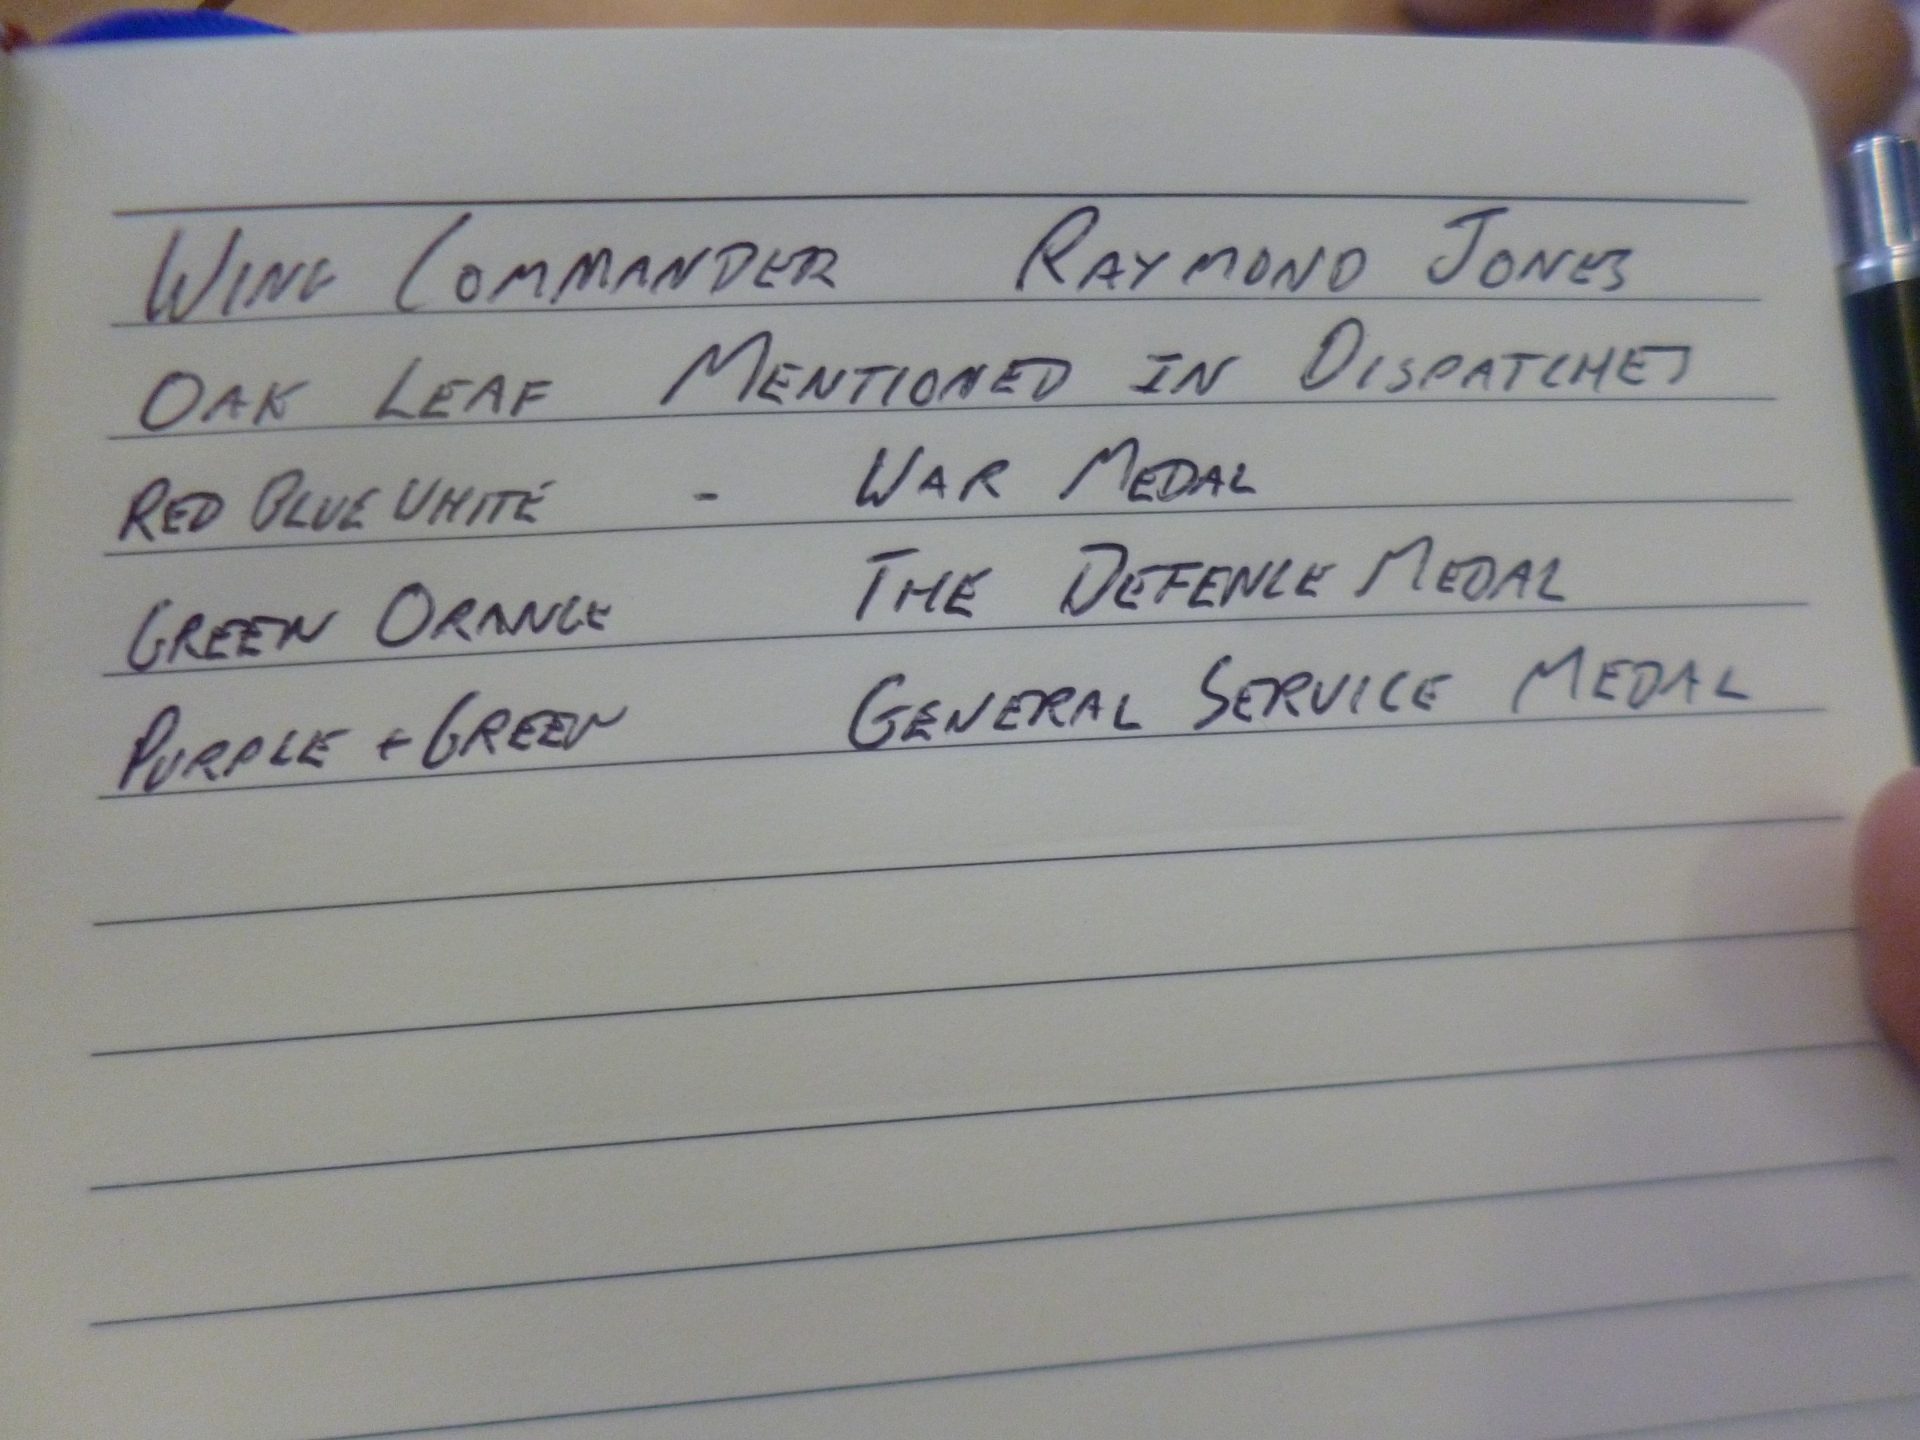 WING COMMANDER RAYMOND JONES
OAK LEAF MENTIONED IN DISPATCHES
RED BLUE WHITE - WAR MEDAL
GREEN ORANGE THE DEFENCE MEDAL
PURPLE + GREEN GENERAL SERVICE MEDAL